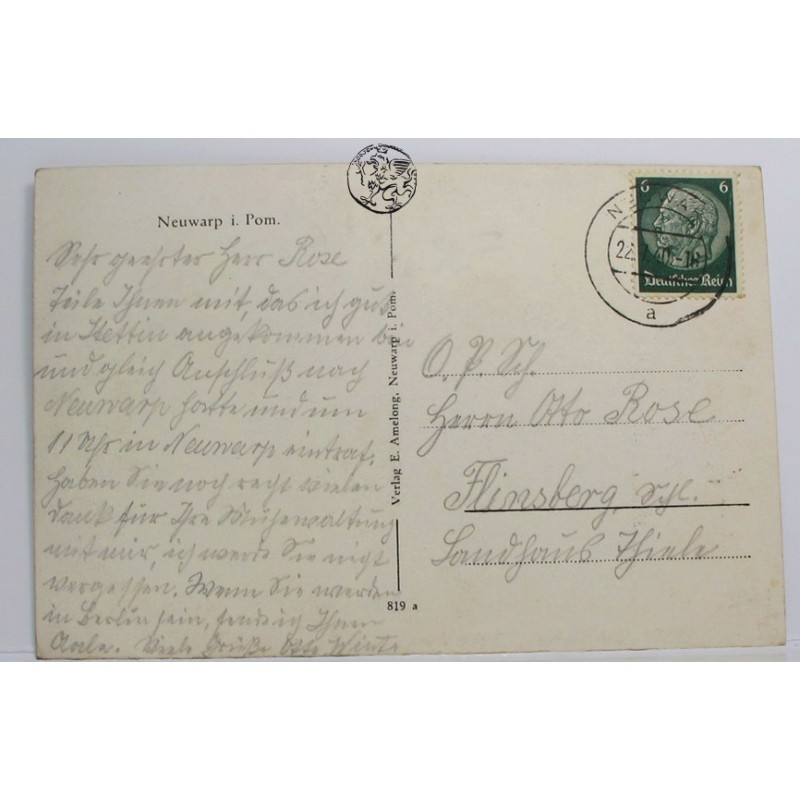 Neuwarp i. Pom.
Sehr geehrter Herr Rose
Teile Ihnen mit, das ich gut
in Stettin angekommen bin
und gleich Anschluß nach
Neuwarp hatte und um
11 Uhr in Neuwarp eintraf.
Haben Sie noch recht vielen
Dank für Ihre Mühewaltung
mit mir, ich werde Sie nicht
vergessen. Wenn Sie werden
in Berlin sein, sende ich Ihnen
Aale. Viele Grüße Otto
Verlag E. Amelong, Neuwarp i. Pom.
819 a
6 6
Deutsches Reich
22.
a
O. P. Sch.
Herrn Otto Rose
Flinsberg, Schl.
Landhaus Thiele